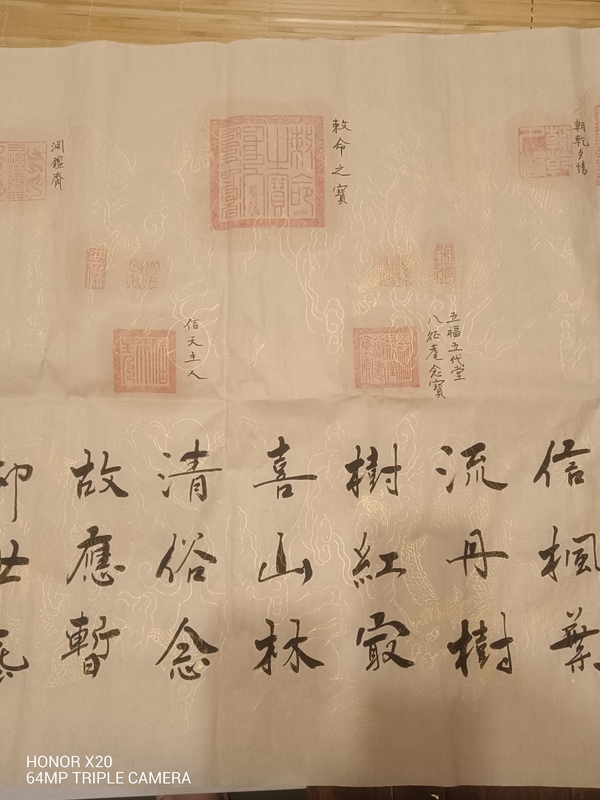 朝乾夕惕
敕命之寶
淵鑑齋
五福五代堂
八征耄念寶
信天主人
信楓葉
流丹樹
樹紅㝡
喜山林
清俗念
故應暫
HONOR X20
64MP TRIPLE CAMERA